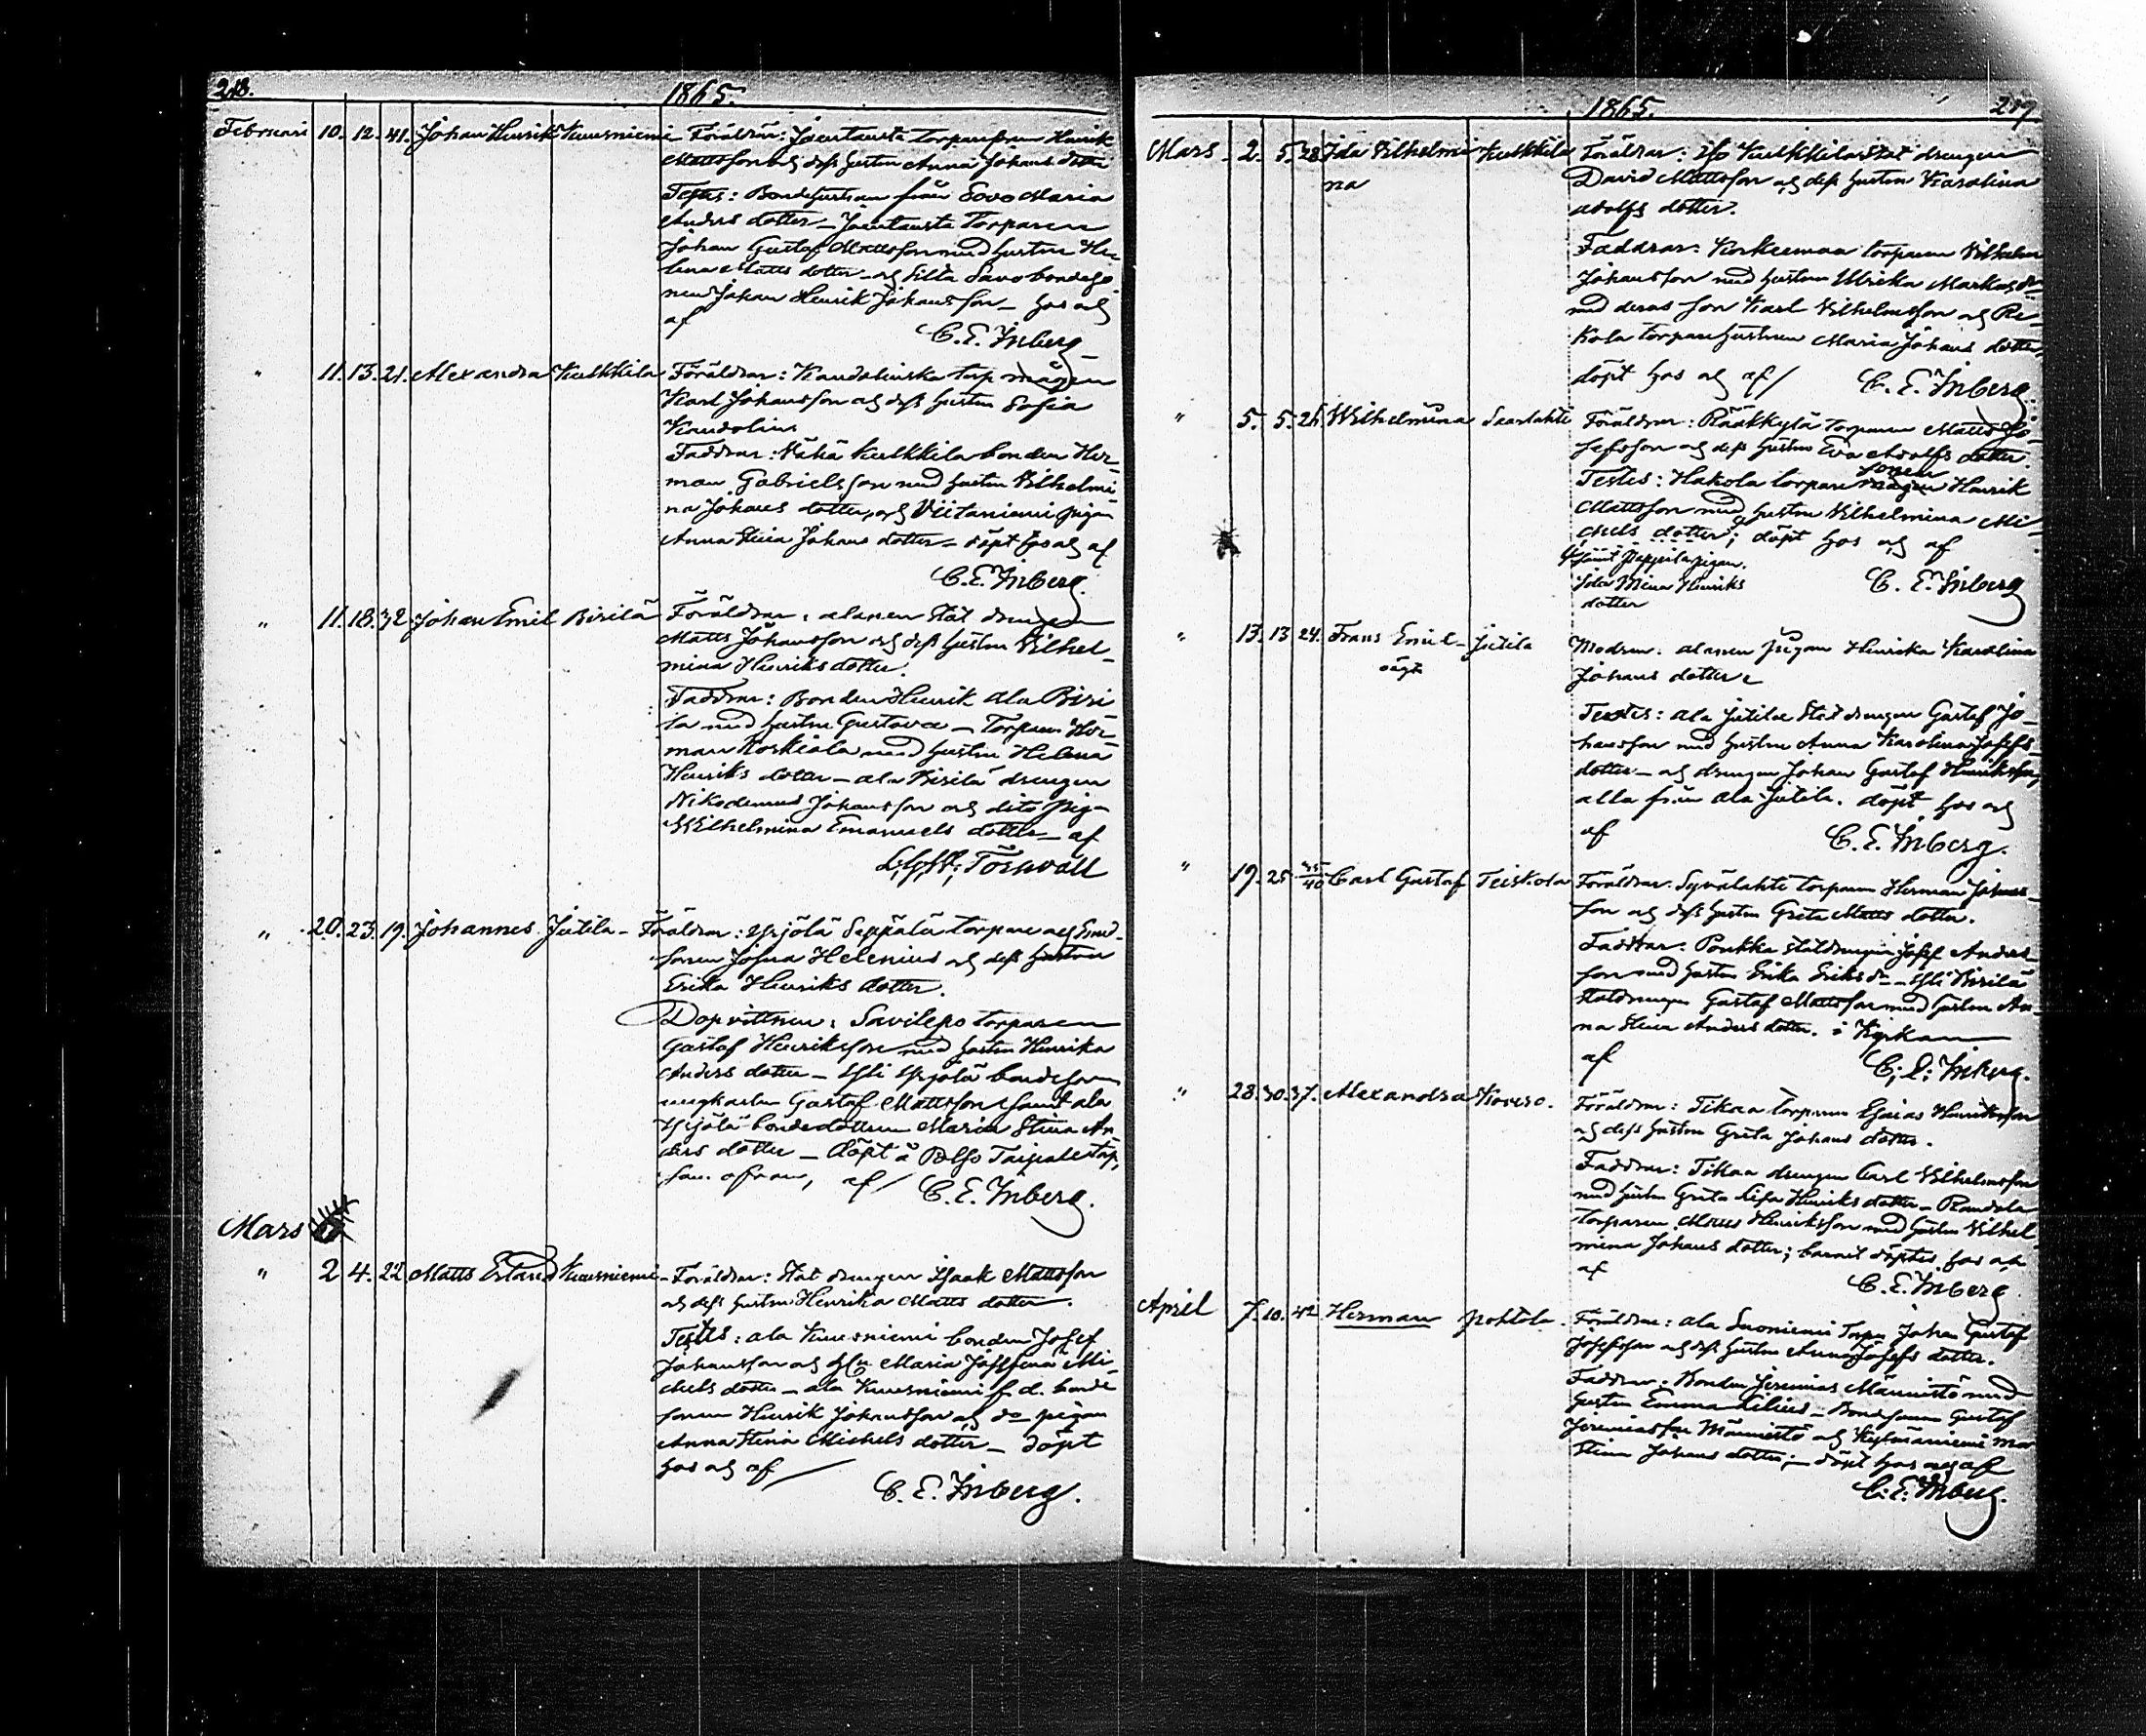 218.
1865.
Februari 10. 12. 41. Johan Henrik Kuusniemi Föräldrar: Jaentausta torparesonen Henrik
Mattsson och dess hustru Anna Johans dotter
Testes: Bondehustrun från Sovo Maria
Anders dotter – Jaentausta Torparen
Johan Gustaf Mattsson med hustru He-
lena Matts dotter – och Silta Savo bondeso
nen Johan Henrik Johansson – hos och
af
C. E. Inberg
" 11. 13. 21. Alexandra Kulkkila Föräldrar: Kandolinska torp mågen
Karl Johansson och dess hustru Sofia
Kandolin
Faddrar: Vähä Kulkkila bonden Her-
man Gabrielsson med hustru Vilhelmi
na Johans dotter, och Viitaniemi pigan
Anna Stina Johans dotter – döpt hos och af
C. E. Inberg.
" 11. 18. 32 Johan Emil Birilä Föräldrar: alanen stat drengen
Matts Johansson och dess hustru Vilhel-
mina Henriks dotter.
Faddrar: Bonden Henrik Ala Biri
la med hustru Gustava – Torparen Her-
man Koskiala med hustru Helena
Henriks dotter – ala Birilä drengen
Nikodemus Johansson och dito pigan
Wilhelmina Emanuels dotter – af
Törnvall
" 20. 23. 19. Johannes Jutila – Föräldrar: Yrjölä Seppälä torpare och Smed-
sonen Josua Helenius och dess hustru
Erika Henriks dotter.
Dopvittnen: Savilepo torparen
Gustaf Henriksson med hustru Henrika
Anders dotter – Yli Yrjölä bondesonen
ungkarlen Gustaf Mattsson samt ala
Yrjölä bondedottren Maria Stina An
ders dotter – döpt å
af / C. E. Inberg.
Mars
" 2 4. 22 Matts Erland Kuusniemi – Föräldrar: Stat drengen Isaak Mattsson
och dess hustru Henrika Matts dotter.
Testes: ala Kuusniemi bonden Josef
Johansson och Maria Josefina Mi-
chels dotter – ala Kuusniemi f. d. bonde
sonen Henrik Johansson och do pigan
Anna Stina Michels dotter – döpt
hos och af
C. E. Inberg.
1865.
219
Mars 2. 5. 28 Ida Vilhelmi Kulkkila Föräldrar: Iso Kulkkila stat drengen
na David Mattsson och dess hustru Karolina
Adolfs dotter.
Faddrar: Korkeemaa torparen Vilhelm
Johansson med hustru Ulrika Markus dr
med deras son Karl Vilhelmsson och Re-
kola torpare hustrun Maria Johans dotter,
döpt hos och af / C. E. Inberg.
" 5. 5. 26. Wilhelmina Saarlahti Föräldrar: Rääkkylä Torparen Matts Jo-
sefsson och dess hustru Eva Adolfs dotter.
sonen
Testes: Hakola torpare mågen Henrik
Mattsson med hustru Vilhelmina Mi-
chels dotter; döpt hos och af
samt pigan
Ida Mina Henriks
dotter
C. E. Inberg
" 13. 13 24. Frans Emil – Jutila Modren: alanen pigan Henrika Karolina
oägt Johans dotter
Testes: Ala Jutila Stat drengen Gustaf Jo-
hansson med hustru Anna Karolina Josefs-
dotter – och drengen Johan Gustaf Henriksson,
alla från Ala Jutila. döpt hos och
af C. E. Inberg.
" 19. 25 45/40 Carl Gustaf Teiskola Föräldrar: Syvälahti torparen Herman Johans-
son och dess hustru Greta Matts dotter.
Faddrar: Poukka statdrengen Josef Anders-
son med hustru Erika Eriks dr – Yli Birilä
statdrengen Gustaf Mattsson med hustru An-
na Stina Anders dotter. i Kyrkan
af C. E. Inberg.
" 28. 30. 37. Alexandra Kovero. Föräldrar: Tikaa torparen Esaias Henriksson
och dess hustru Greta Johans dotter.
Faddrar: Tikaa drengen Carl Vilhelmsson
med hustru Greta Lisa Henriks dotter – Randala
torparen Matts Henriksson med hustru Vilhel
mina Johans dotter; barnet döptes hos och
af
C. E. Inberg
April 7. 10. 42 Herman Pohtola. Föräldrar: ala Suoniemi Torp. Johan Gustaf
Josefsson och dess hustru Anna Josefs dotter.
Faddrar: Bonden Jeremias Männistö med
hustru Emma Lilius – Bondsonen Gustaf
Jeremiasson Männistö och Kylmäniemi Ma
Stina Johans dotter; – döpt hos och af
C. E. Inberg.